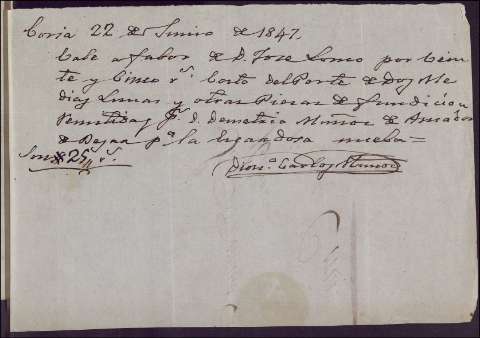 Coria 22 de Junio de 1847.
Vale a fabor de D. Jose Lomo por bein
te y Cinco r.s Costo del Porte de Dos Me
dias Lunas y otras Piesas de fundicion
Remitidas p.r D. Demetrio Muñoz de
de Bejar p.a la nueba =
Son 25 r.s
Carlos Muñoz